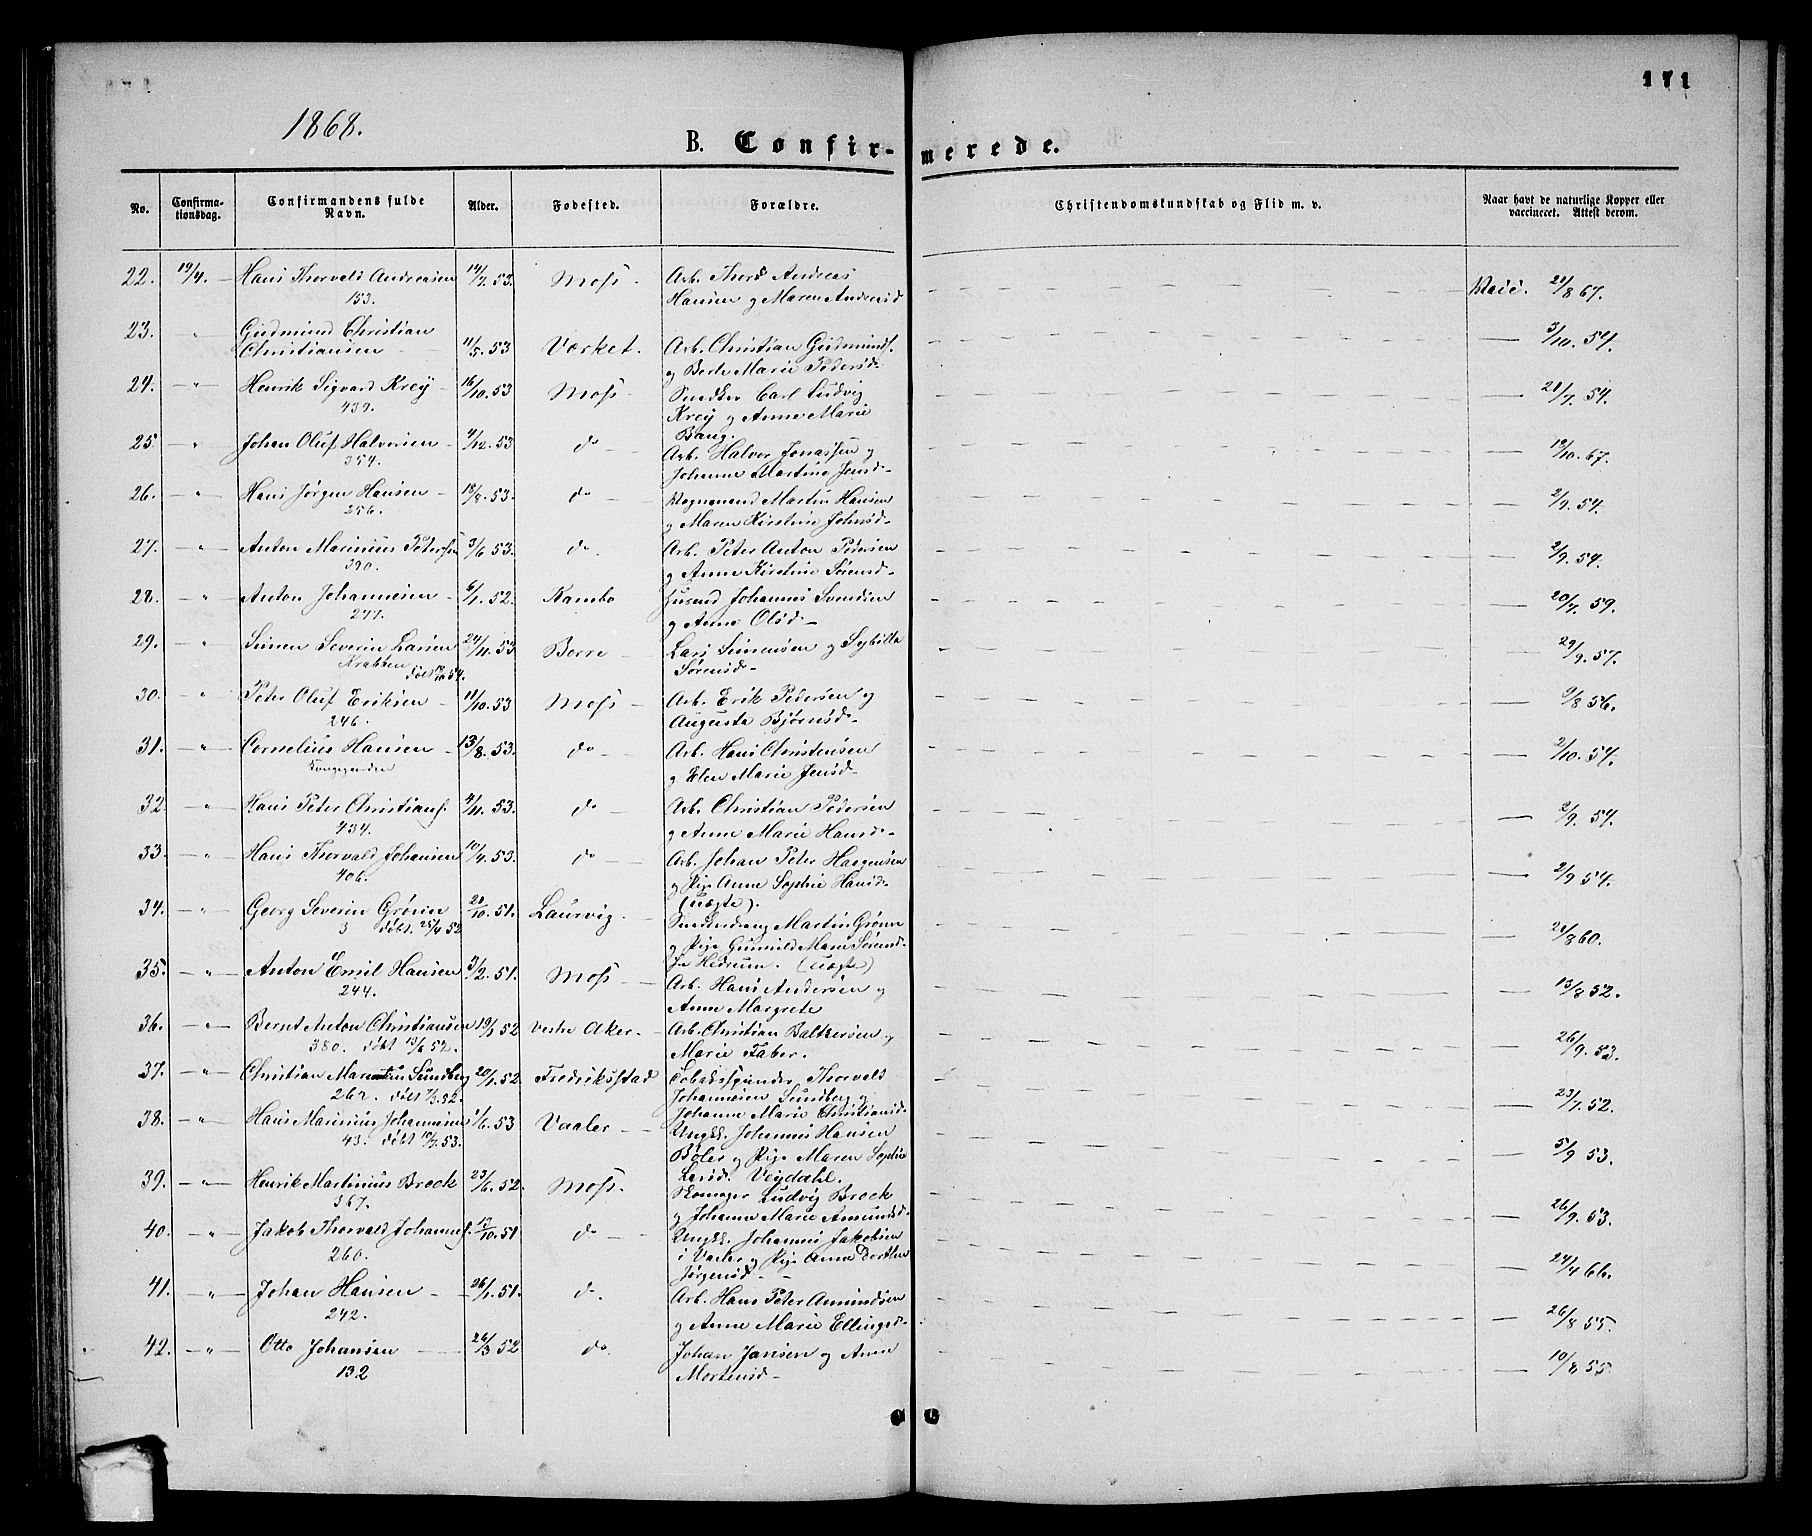 171
1868.
B. Confirmerede.
No.
Confirmationsdag.
Confirmandens fulde Navn.
Alder.
Fødested.
Forældre.
Christendomskundskab og Flid m. v.
Naar havt de naturlige Kopper eller vaccineret. Attest derom.
22. 19/4. Hans Thorvald Andreasen 14/7. 53. Moss. Arb. Thord Andreas Vacc. 21/8 67.
153. Hansen og Maren Andreasd
23. " Gudmund Christian
Christiansen 11/5. 53 Værket. Arb. Christian Gudmunds. 3/10. 54.
og Berte Marie Pedersd.
24. " Henrik Sigvard Krey 16/10. 53 Moss Snedker Carl Ludvig 21/7. 54.
439. Krey og Anne Marie
Bang.
25 " Johan Oluf Halvorsen 4/12. 53 do Arb. Halvor Jonassen og 19/10. 67.
354. Johanne Martine Jensd.
26. " Hans Jørgen Hansen 18/8. 53. do Vognmand Martin Hansen 2/9. 54.
256. og Maren Kirstine Johnsd.
27. " Anton Marinius Petersen 3/6 53. do. Arb. Peter Anton Pedersen 2/9. 54.
390. og Anne Kirstine Sørensd.
28. " Anton Johannesen 6/1. 52. Kambo Husmd Johannes Svendsen 20/7. 59.
277. og Anne Olsd.
29. " Simen Severin Larsen 24/11. 53 Borre Lars Simensen og Sybilla 29/9. 57.
Krabben Sørensd.
30. " Peter Oluf Eriksen 11/10. 53 Moss Arb. Erik Pedersen og 9/8 56.
246. Augusta Bjørnsd.
31. " Cornelius Hansen 13/8. 53. do Arb. Hans Christensen 2/10. 54.
Kongegaarden og Elen Marie Jensd.
32 " Hans Peter Christians. 4/11. 53. do Arb. Christian Pedersen 2/9. 54.
434. og Anne Marie Hansd.
33. " Hans Thorvald Johansen 10/4. 53. do Arb. Johan Peter Haagensen 2/9 54.
406. og Pige Anne Sophie Hansd.
(uægte).
34. " Georg Severin Grønn 20/10. 51. Laurvig. Snedkersvend Martin Grønn 21/8 60.
3 døbt 25/4 52 og Pige Gunnild Marie Sørensd.
fra Hedrum. (uægte)
35. " Anton Emil Hansen 3/2. 51. Moss Arb. Hans Andersen og 13/8 52.
244. Anne Margrete
36. " Bernt Anton Christiansen 19/1 52 Vestre Aker. Arb. Christian Baltzersen og 26/9. 53.
380. døbt 13/6 52. Marie Faber.
37. " Christian Martinius Sundberg 20/1. 52. Fredriksstad Tobaksspinder Thorvald 23/7. 52.
262. døbt 7/3. 52. Johannesen Sundberg og
Johanne Marie Christiansd.
38. " Hans Marinius Johannesen 1/6. 53 Vaaler Ungk. Johannes Hansen 5/9 53.
43. døbt 10/7. 53. Bøler og Pige Maren Sophie
Larsd. Veydahl.
39. " Henrik Martinius Brock 23/6. 52. Moss. Skomager Ludvig Brock 26/9. 53.
367. og Johanne Marie Amundsd.
40. " Jakob Thorvald Johannes. 13/10. 51 do Ungk. Johannes Jakobsen 24/4 66.
260. i Vaaler og Pige Anne Dorthea
Jørgensd.
41. " Johan Hansen 26/1. 51. do. Arb. Hans Peter Amundsen 26/8 55.
242. og Anne Marie Ellingsd.
42. " Otto Johansen 26/3 52 do. Johan Jansen og Anne 10/8 55.
132 Mortensd.